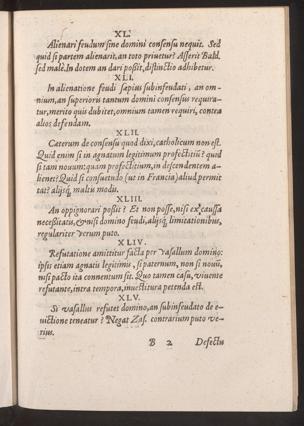 XL.
Alienari feudum sine domini consensu nequit. Sed
quid si partem alienarit, an toto priuetur? Asserit Bald.
sed malè. In dotem an dari possit, distinctio adhibetur.
XLI.
In alienatione feudi sæpius subinfeudati, an om-
nium, an superioris tantum domini consensus requira-
tur, meritò quis dubitet, omnium tamen requiri, contra
alios defendam.
XLII.
Cæterum de consensu quod dixi, catholicum non est.
Quid enim si in agnatum legitimum profectitiũ? quid
si tam nouum quàm profectitium, in descendentem a-
lienet? Quid si consuetudo (ut in Francia) aliud permit
tat? alijsq; multis modis.
XLIII.
An oppignorari possit? Et non posse, nisi ex causa
necessitatis, & nisi domino feudi, alijsq; limitationibus,
regulariter verum puto.
XLIV.
Refutatione amittitur facta per vasallum domino:
ipsis etiam agnatis legitimis, si paternum, non si nouũ,
nisi pacto ita conuentum sit. Quo tamen casu, viuente
refutante, intra tempora, inuestitura petenda est.
XLV.
Si vasallus refutet domino, an subinfeudato de e-
uictione teneatur? Negat Zas. contrarium puto ve-
rius.
B 2 Defectu